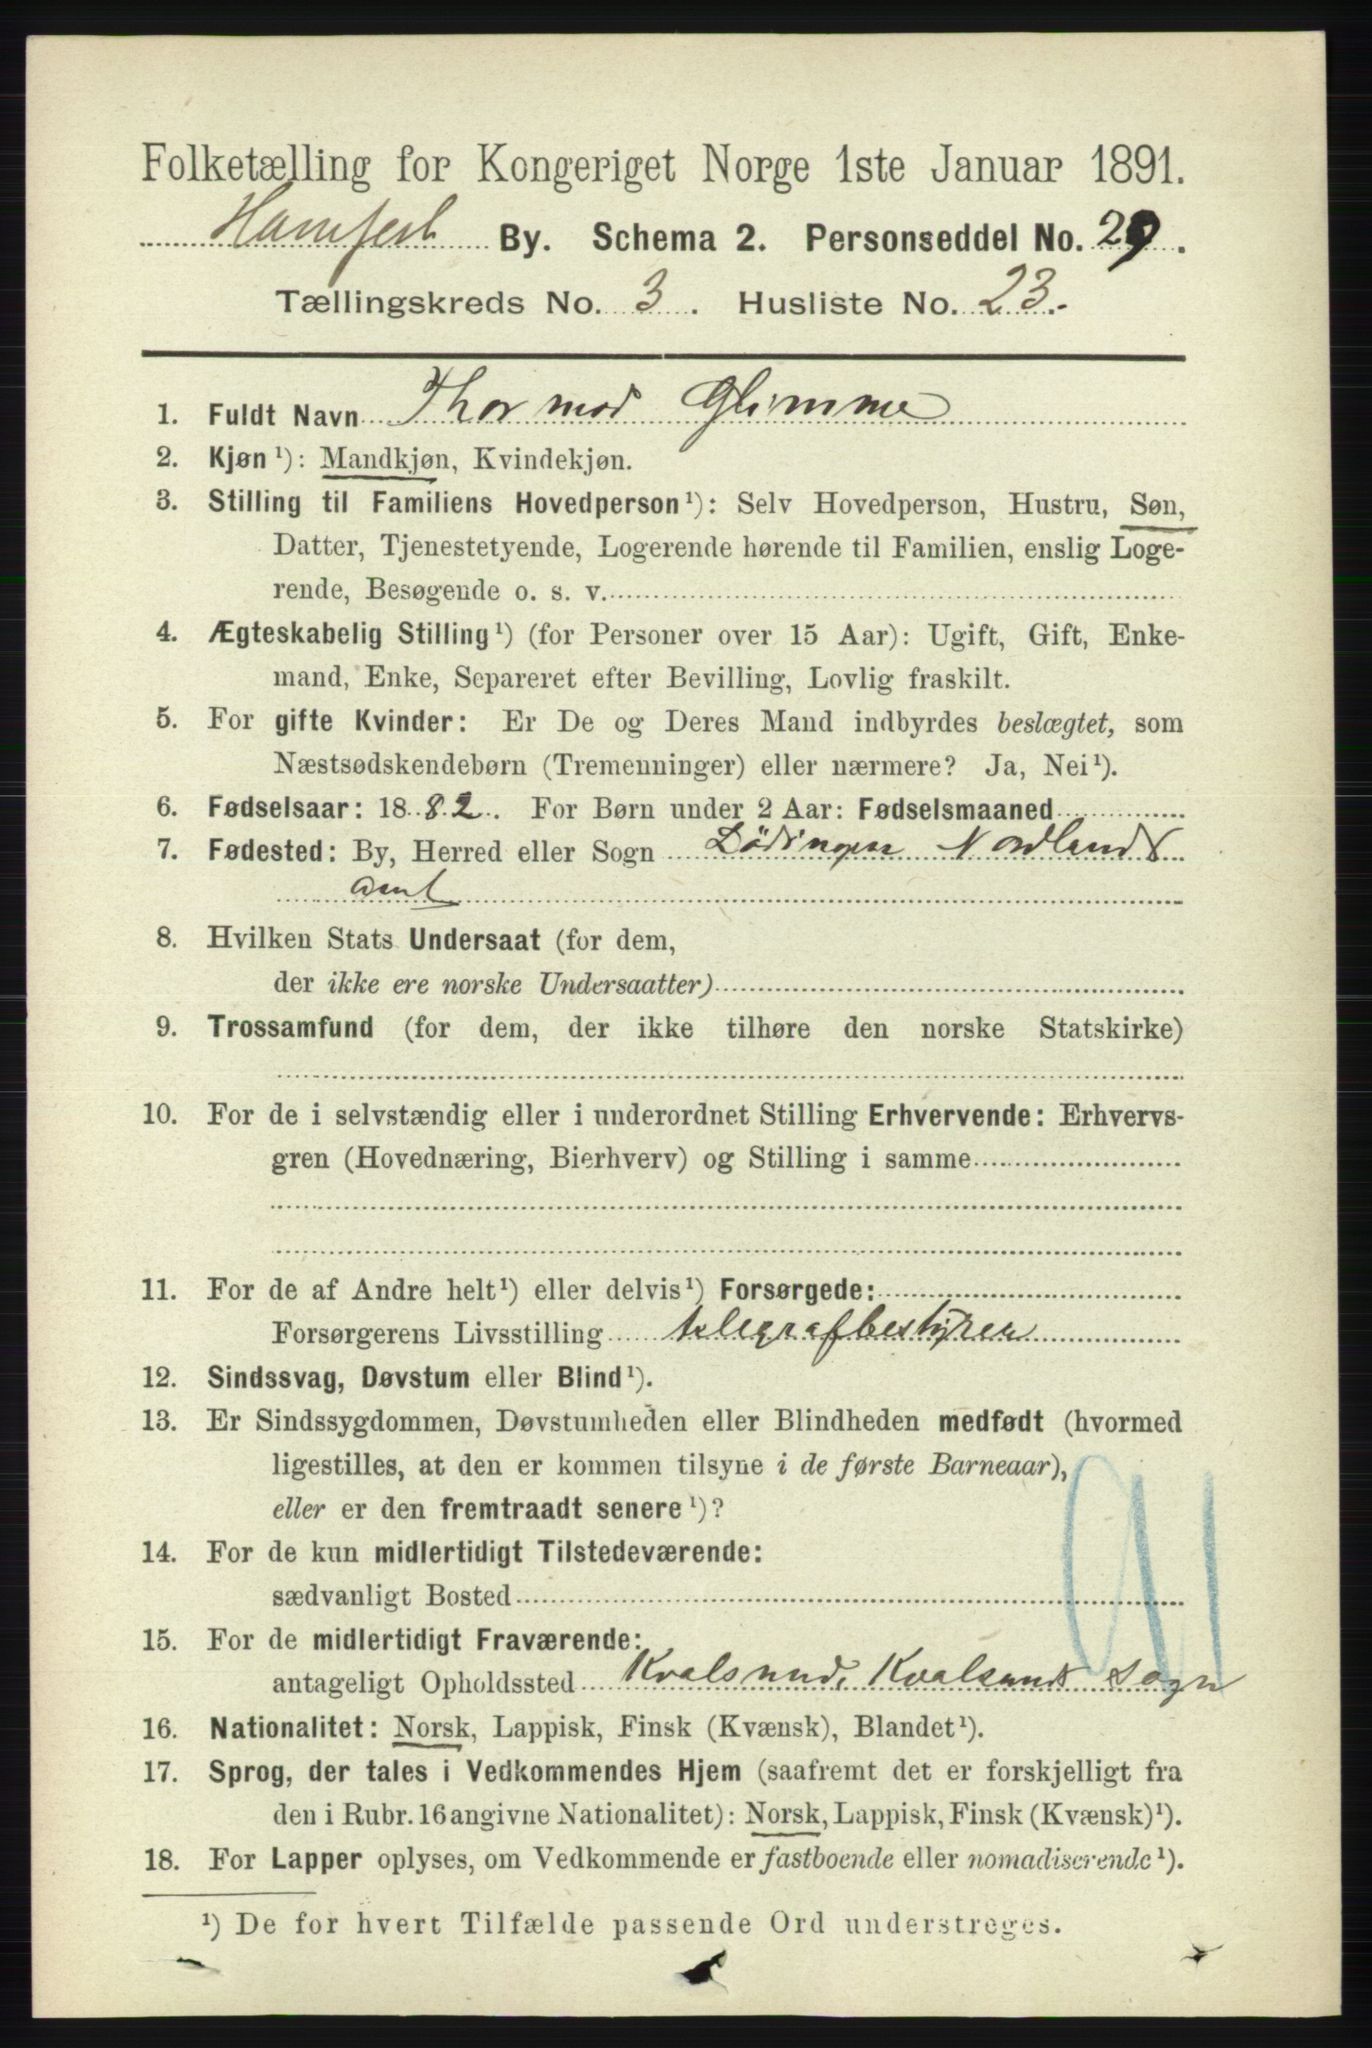 Folketælling for Kongeriget Norge 1ste Januar 1891.
Hamfest By. Schema 2. Personseddel No. 29.
Tællingskreds No. 3. Husliste No. 23.
1. Fuldt Navn Thormod Glimme
2. Kjøn ¹): Mandkjøn, Kvindekjøn.
3. Stilling til Familiens Hovedperson ¹): Selv Hovedperson, Hustru, Søn,
Datter, Tjenestetyende, Logerende hørende til Familien, enslig Loge-
rende, Besøgende o. s. v.
4. Ægteskabelig Stilling ¹) (for Personer over 15 Aar): Ugift, Gift, Enke-
mand, Enke, Separeret efter Bevilling, Lovlig fraskilt.
5. For gifte Kvinder: Er De og Deres Mand indbyrdes beslægtet, som
Næstsødskendebørn (Tremenninger) eller nærmere? Ja, Nei ¹).
6. Fødselsaar: 1882. For Børn under 2 Aar: Fødselsmaaned
7. Fødested: By, Herred eller Sogn Lødingen Nordlands
amt
8. Hvilken Stats Undersaat (for dem,
der ikke ere norske Undersaatter)
9. Trossamfund (for dem, der ikke tilhøre den norske Statskirke)
10. For de i selvstændig eller i underordnet Stilling Erhvervende: Erhvervs-
gren (Hovednæring, Bierhverv) og Stilling i samme
11. For de af Andre helt ¹) eller delvis ¹) Forsørgede:
Forsørgerens Livsstilling telegrafbestyrer
12. Sindssvag, Døvstum eller Blind ¹).
13. Er Sindssygdommen, Døvstumheden eller Blindheden medfødt (hvormed
ligestilles, at den er kommen tilsyne i de første Barneaar),
eller er den fremtraadt senere ¹)?
14. For de kun midlertidigt Tilstedeværende:
sædvanligt Bosted
15. For de midlertidigt Fraværende:
antageligt Opholdssted Kvalsund, Kvalsunds Sogn
16. Nationalitet: Norsk, Lappisk, Finsk (Kvænsk), Blandet ¹).
17. Sprog, der tales i Vedkommendes Hjem (saafremt det er forskjelligt fra
den i Rubr. 16 angivne Nationalitet): Norsk, Lappisk, Finsk (Kvænsk) ¹).
18. For Lapper oplyses, om Vedkommende er fastboende eller nomadiserende ¹).
¹) De for hvert Tilfælde passende Ord understreges.